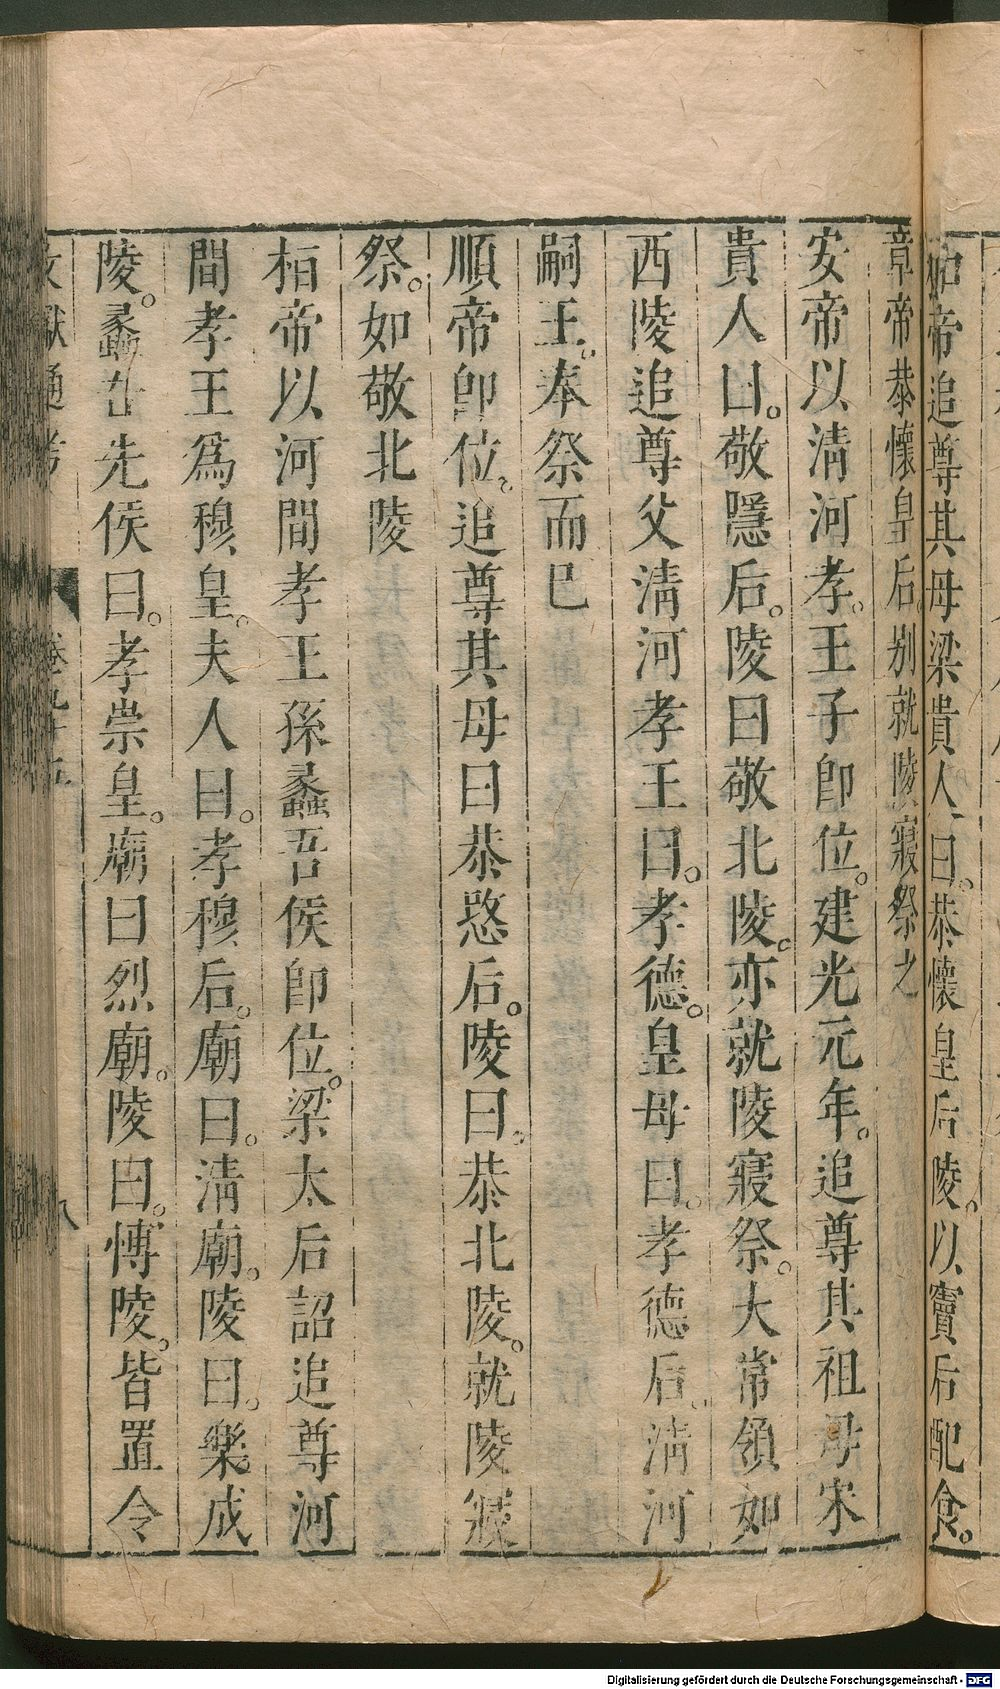 和帝追尊其母梁貴人曰。恭懷皇后陵。以竇后配食。
章帝恭懷皇后。別就陵寢祭之
安帝以清河孝。王子卽位。建光元年。追尊其祖母宋
貴人曰。敬隱后。陵曰敬北陵。亦就陵寢祭。大常領如
西陵追尊父清河孝王曰。孝德。皇母曰。孝德后。清河
嗣王。奉祭而已
順帝卽位。追尊其母曰恭愍后。陵曰。恭北陵。就陵寢
祭。如敬北陵
桓帝以河間孝王孫蠡吾侯卽位。梁太后詔追尊河
間孝王爲穆皇。夫人曰。孝穆后。廟曰。清廟。陵曰。樂成
陵。蠡吾先侯曰。孝崇皇。廟曰烈廟。陵曰。博陵。皆置令
文獻通考 卷九十五 八
Digitalisierung gefördert durch die Deutsche Forschungsgemeinschaft - DFG